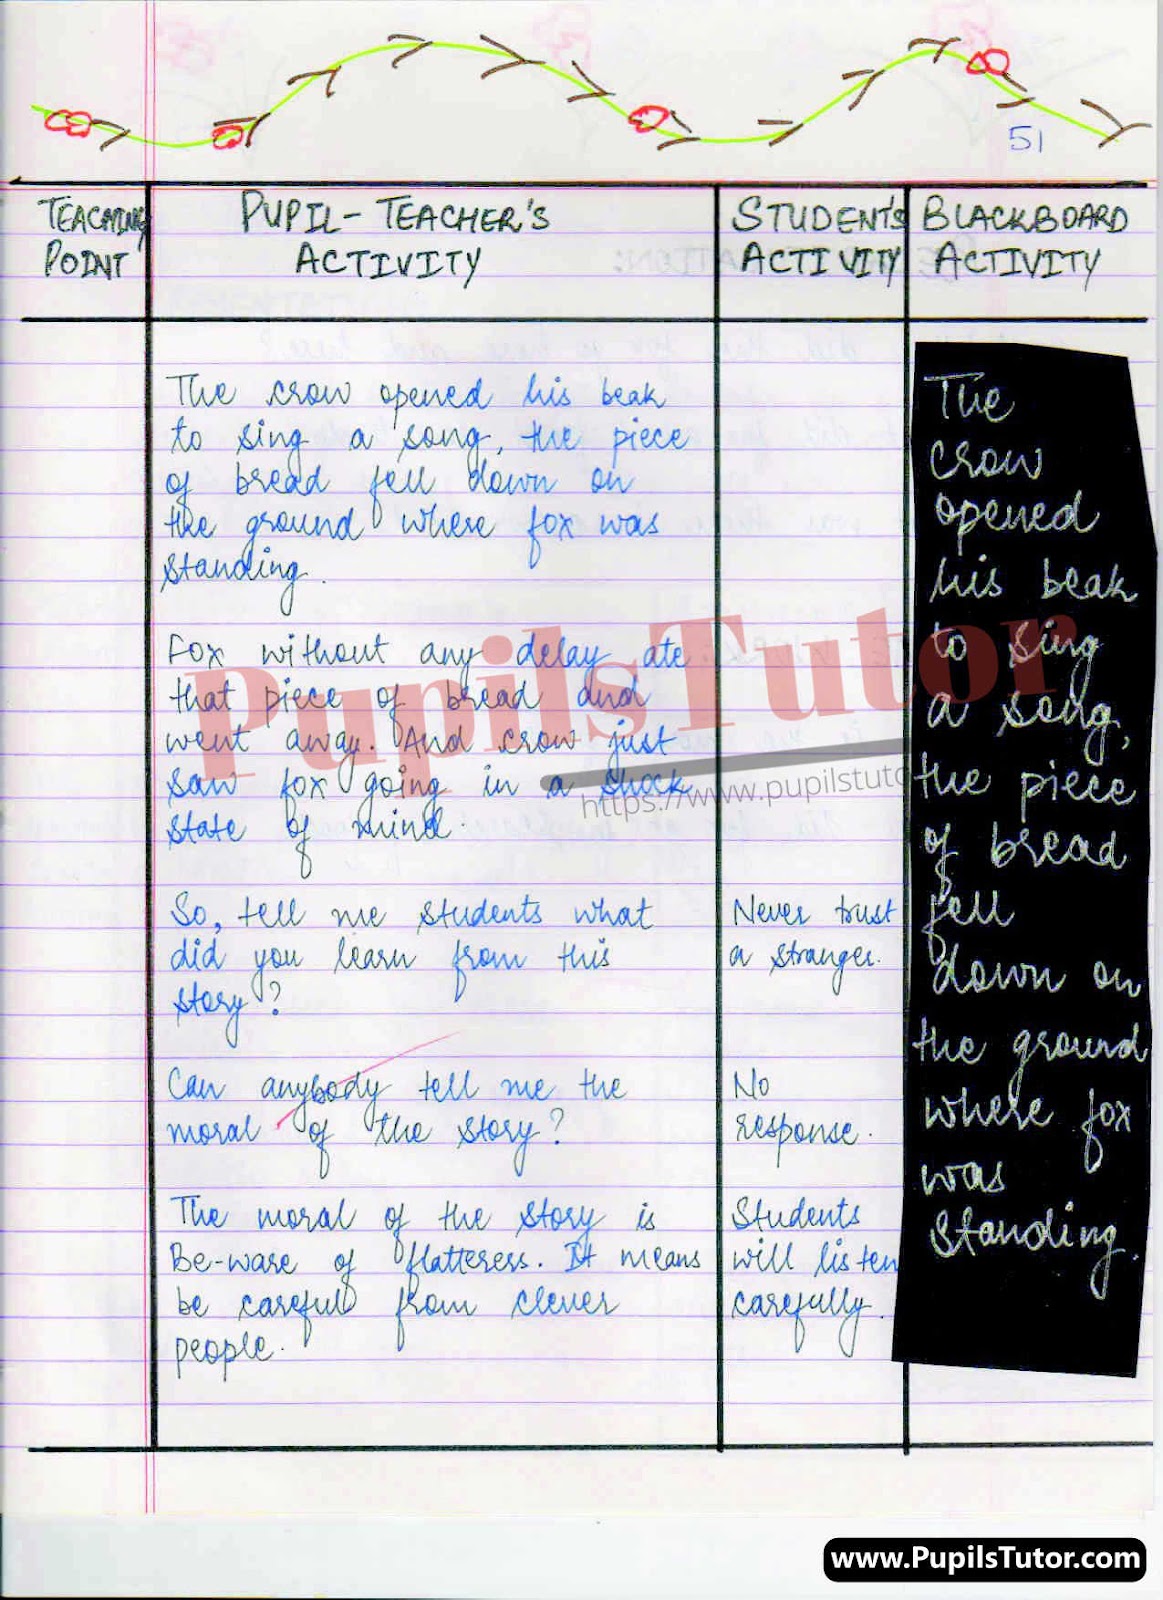 51
TEACHING
POINT
PUPIL-TEACHER'S
ACTIVITY
STUDENT'S
ACTIVITY
BLACKBOARD
ACTIVITY
The crow opened his beak
to sing a song, the piece
of bread fell down on
the ground where fox was
standing.
Fox without any delay ate
that piece of bread and
went away. And crow just
saw fox going in a shock
state of mind.
So, tell me students what
did you learn from this
story?
Can anybody tell me the
moral of the story?
The moral of the story is
Be-ware of flatteress. It means
be careful from clever
people.
Never trust
a stranger.
No
response.
Students
will listen
carefully.
The
crow
opened
his beak
to sing
a song,
the piece
of bread
fell
down on
the ground
where fox
was
standing.
PupilsTutor
https://www.pupilstuto
www.PupilsTutor.com